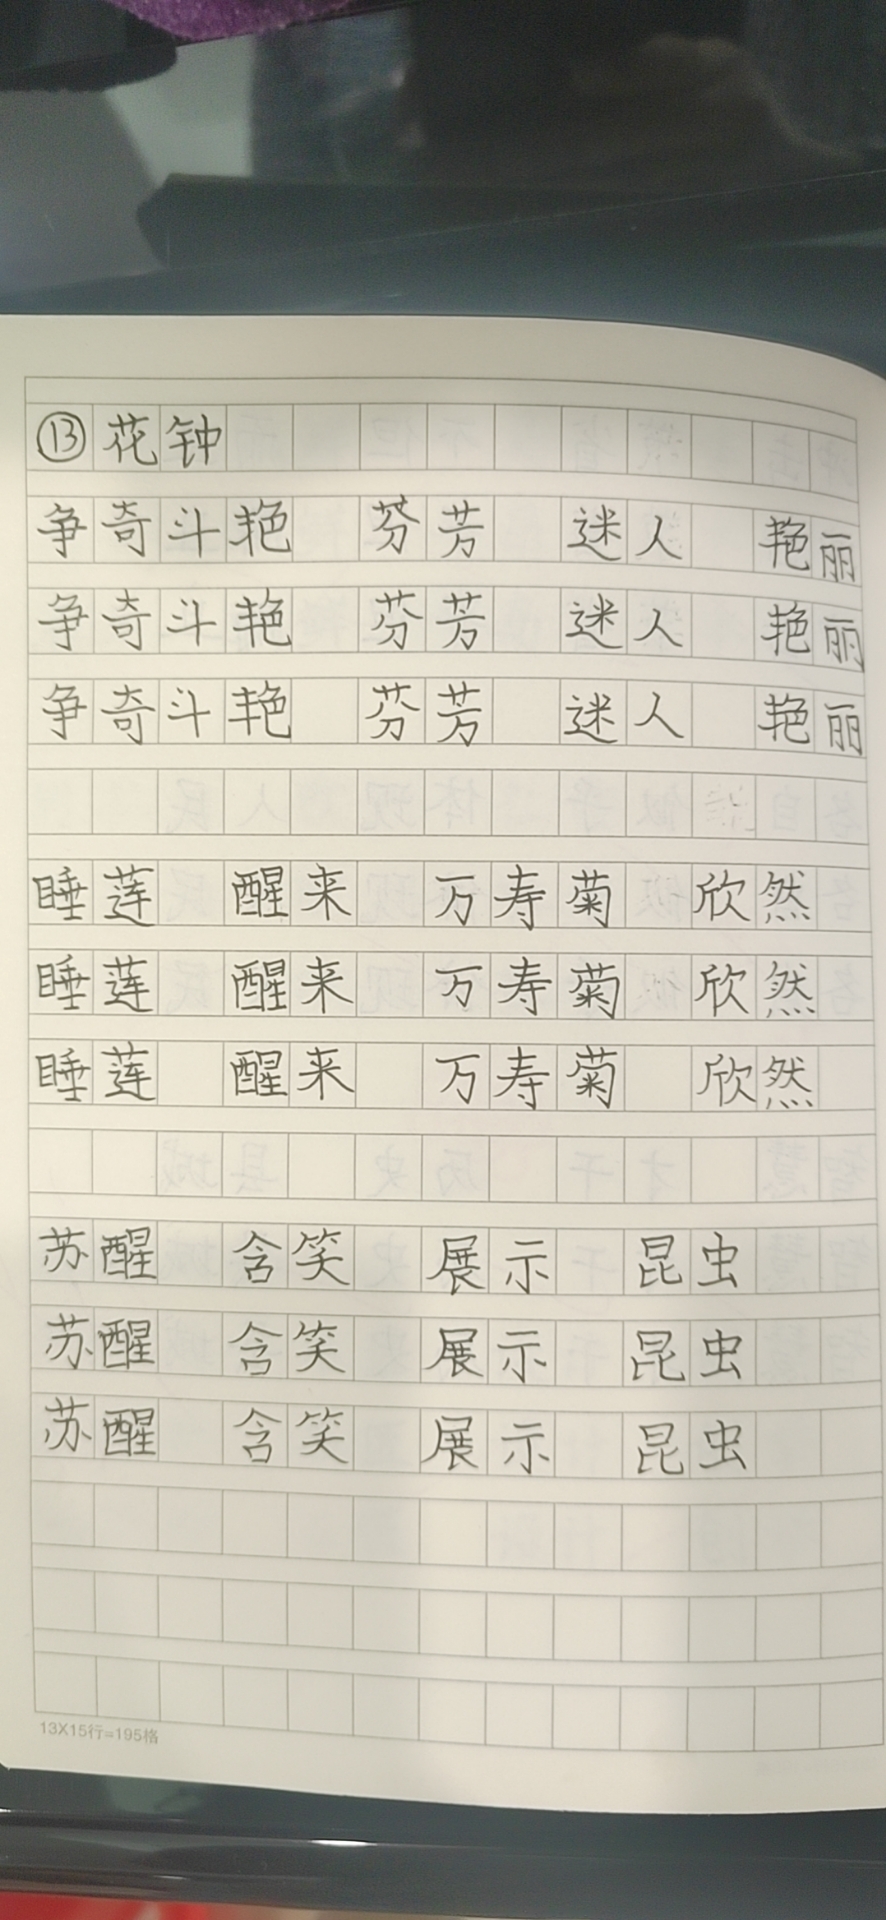 ⑬花钟
争奇斗艳 芬芳 迷人 艳丽
争奇斗艳 芬芳 迷人 艳丽
争奇斗艳 芬芳 迷人 艳丽
睡莲 醒来 万寿菊 欣然
睡莲 醒来 万寿菊 欣然
睡莲 醒来 万寿菊 欣然
苏醒 含笑 展示 昆虫
苏醒 含笑 展示 昆虫
苏醒 含笑 展示 昆虫
13X15行=195格